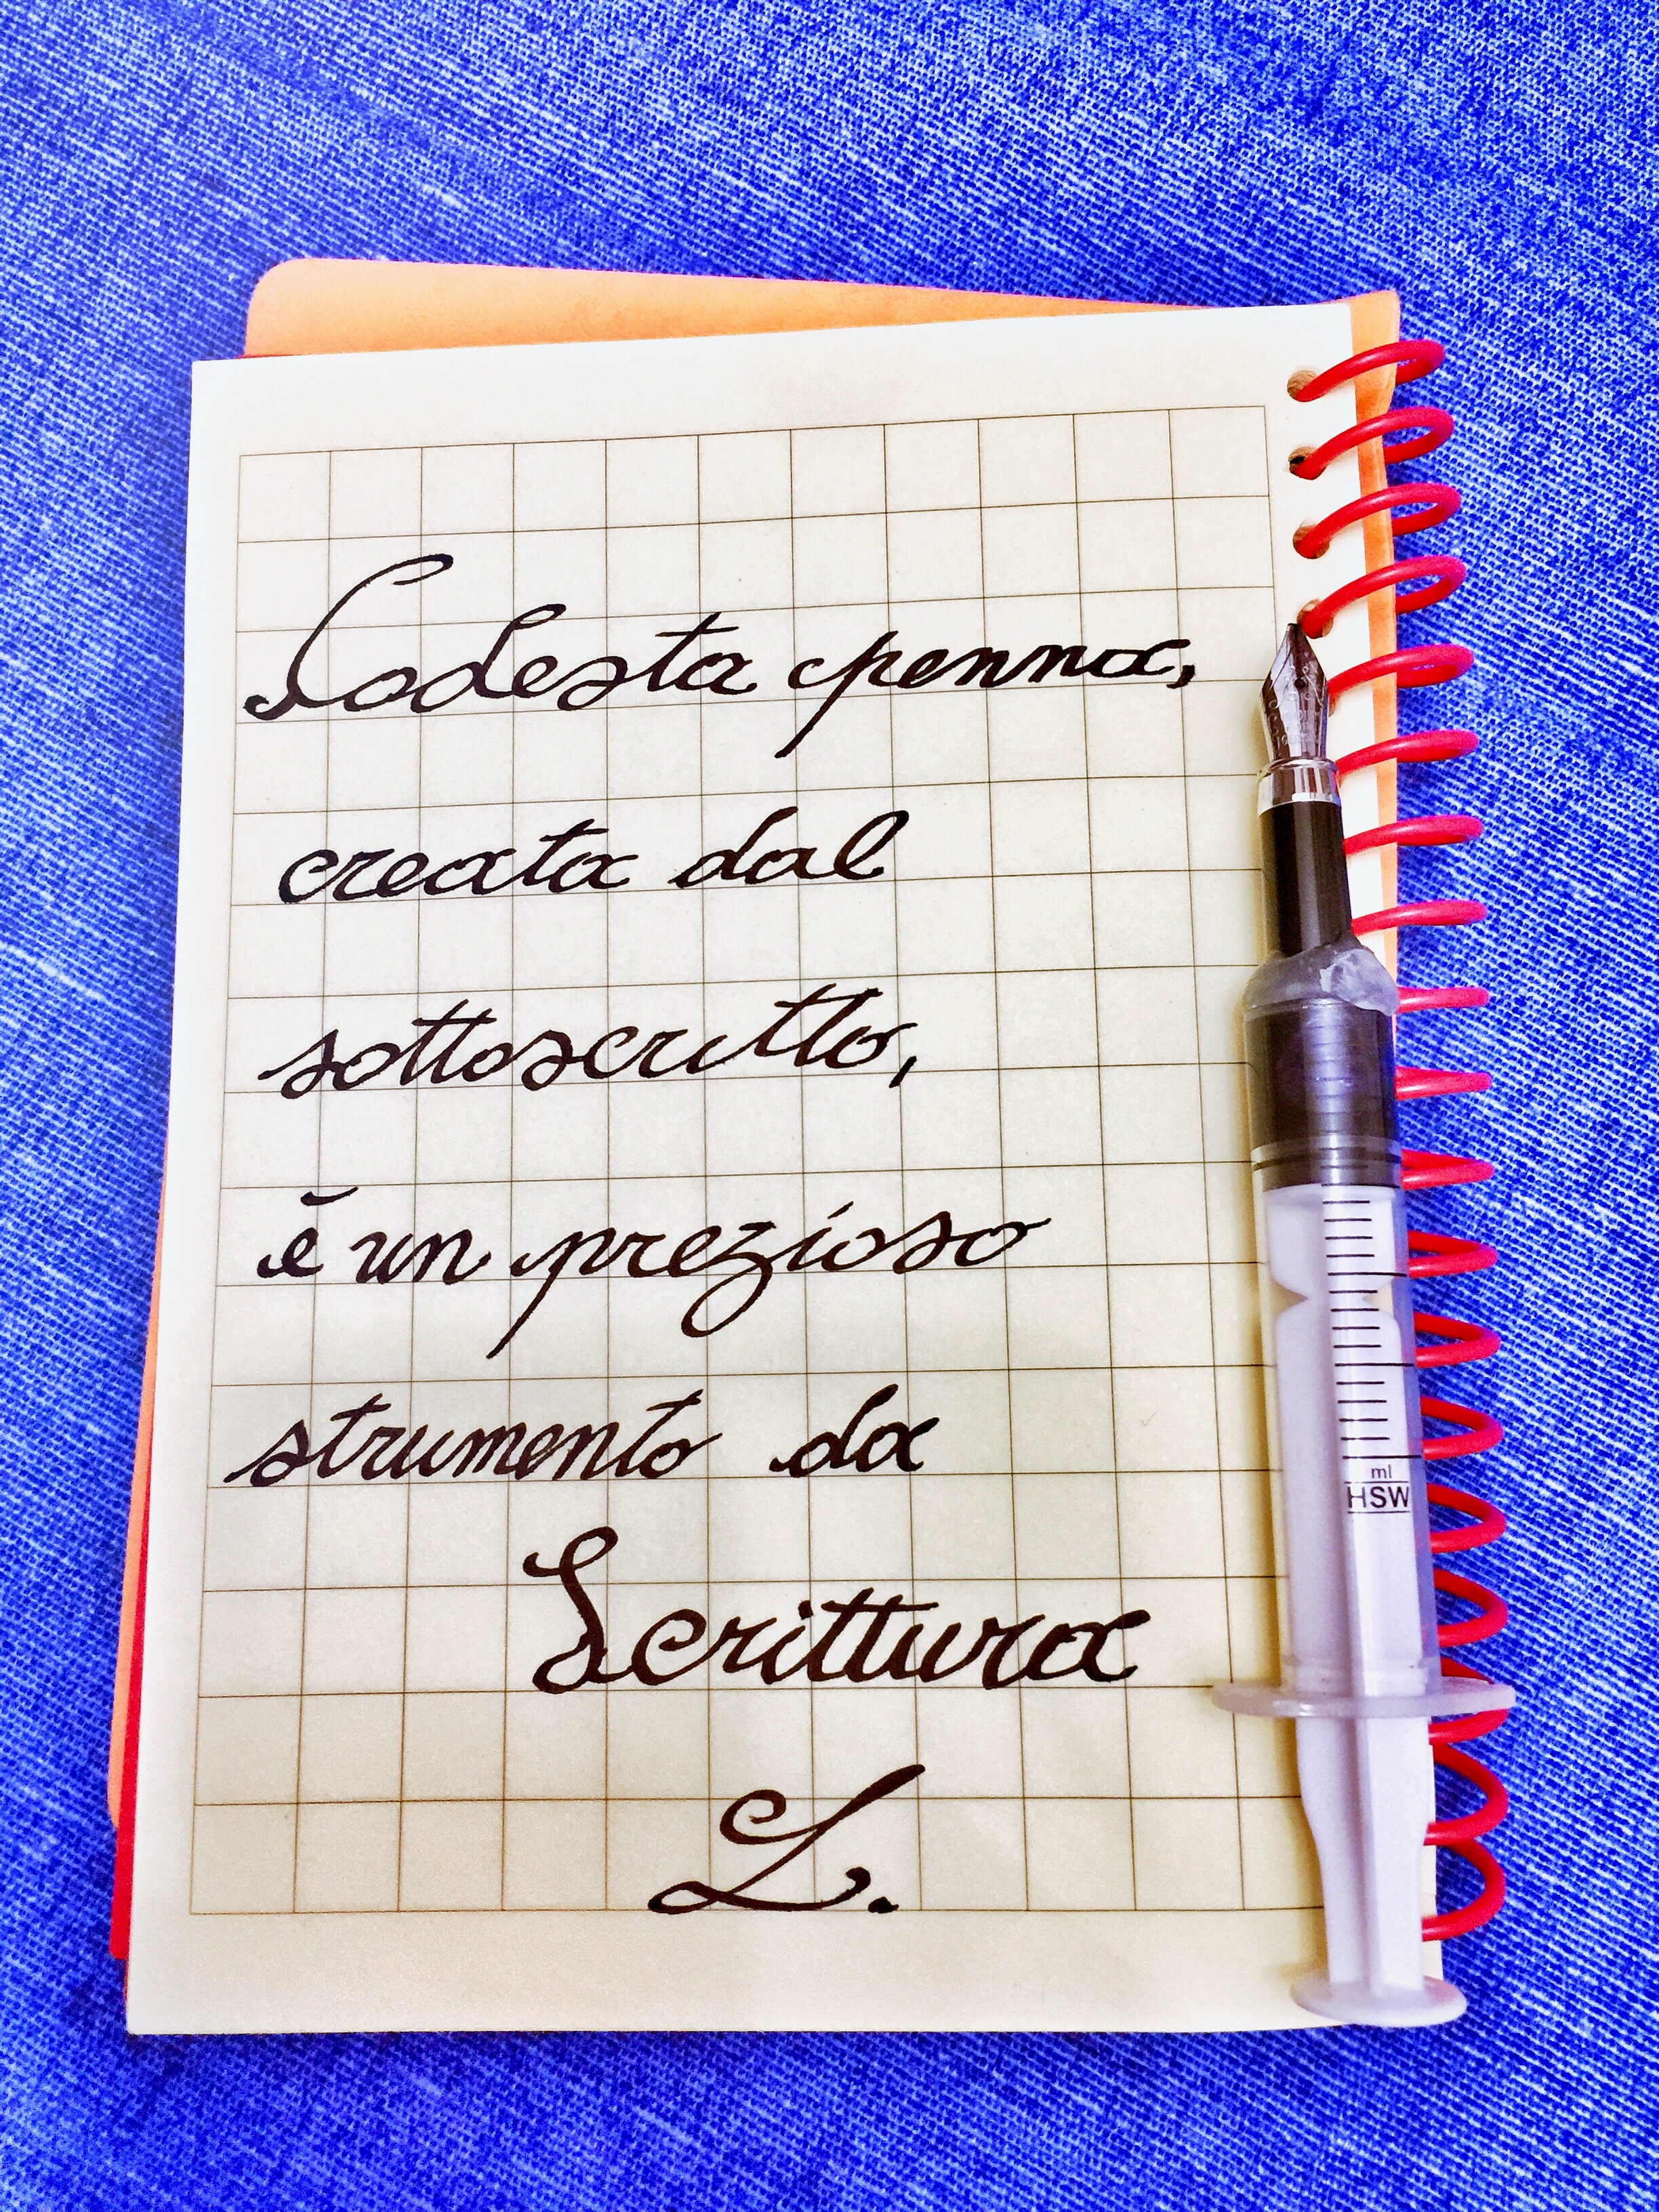 Codesta penna,
creata dal
sottoscritto,
è un prezioso
strumento da
Scrittura
L.
ml
HSW